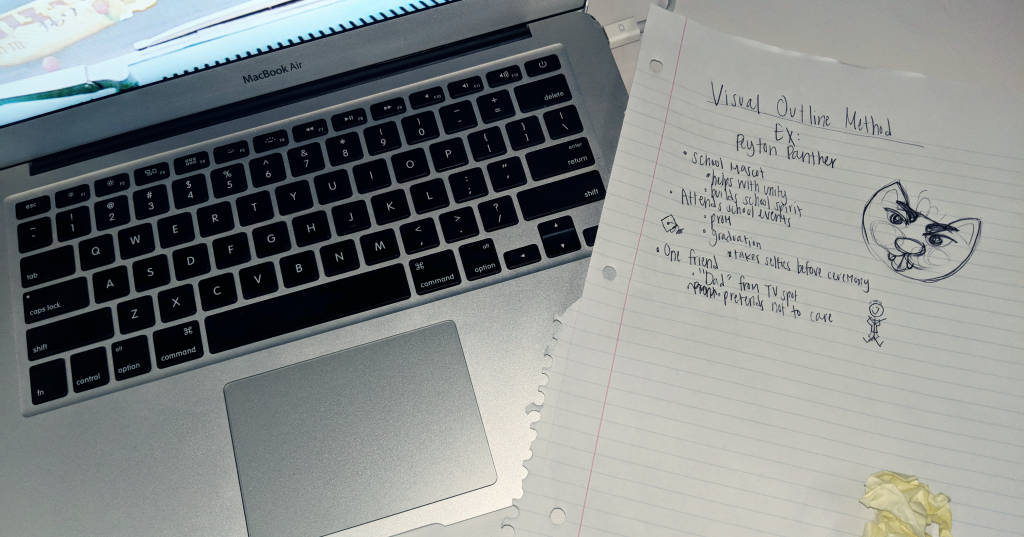 MacBook Air
esc F1 F2 F3 F4 F5 F6 F7 F8 F9 F10 F11 F12
~ ` ! 1 @ 2 # 3 $ 4 % 5 ^ 6 & 7 * 8 ( 9 ) 0 _ - + = delete
tab Q W E R T Y U I O P { [ } ] | \
caps lock A S D F G H J K L : ; " ' enter return
shift Z X C V B N M < , > . ? / shift
fn control alt option ⌘ command ⌘ command alt option
Visual Outline Method
EX:
Peyton Panther
• School Mascot
• helps with unity
• builds school spirit
• Attends school events
• prom
• graduation
*takes selfies before ceremony
• One friend
• "Dad" from TV spot
pretends not to care